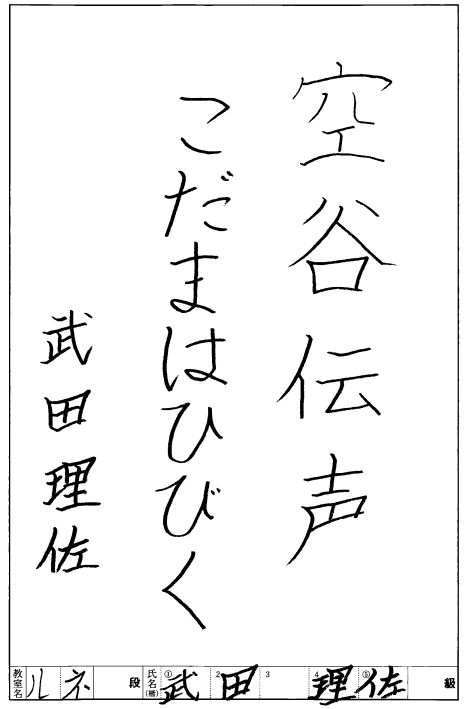 空谷伝声
こだまはひびく
武田理佐
教室名 ルネ 段 氏名(楷) ① 武 2 田 3 4 理 ⑤ 佐 級